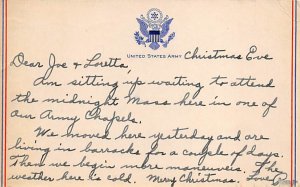 UNITED STATES ARMY
Christmas Eve
Dear Joe & Loretta,
Am sitting up waiting to attend
the midnight Mass here in one of
our Army Chapels.
We moved here yesterday and are
living in barracks for a couple of days.
Then we begin more maneuvers. The
weather here is cold. Merry Christmas. Love